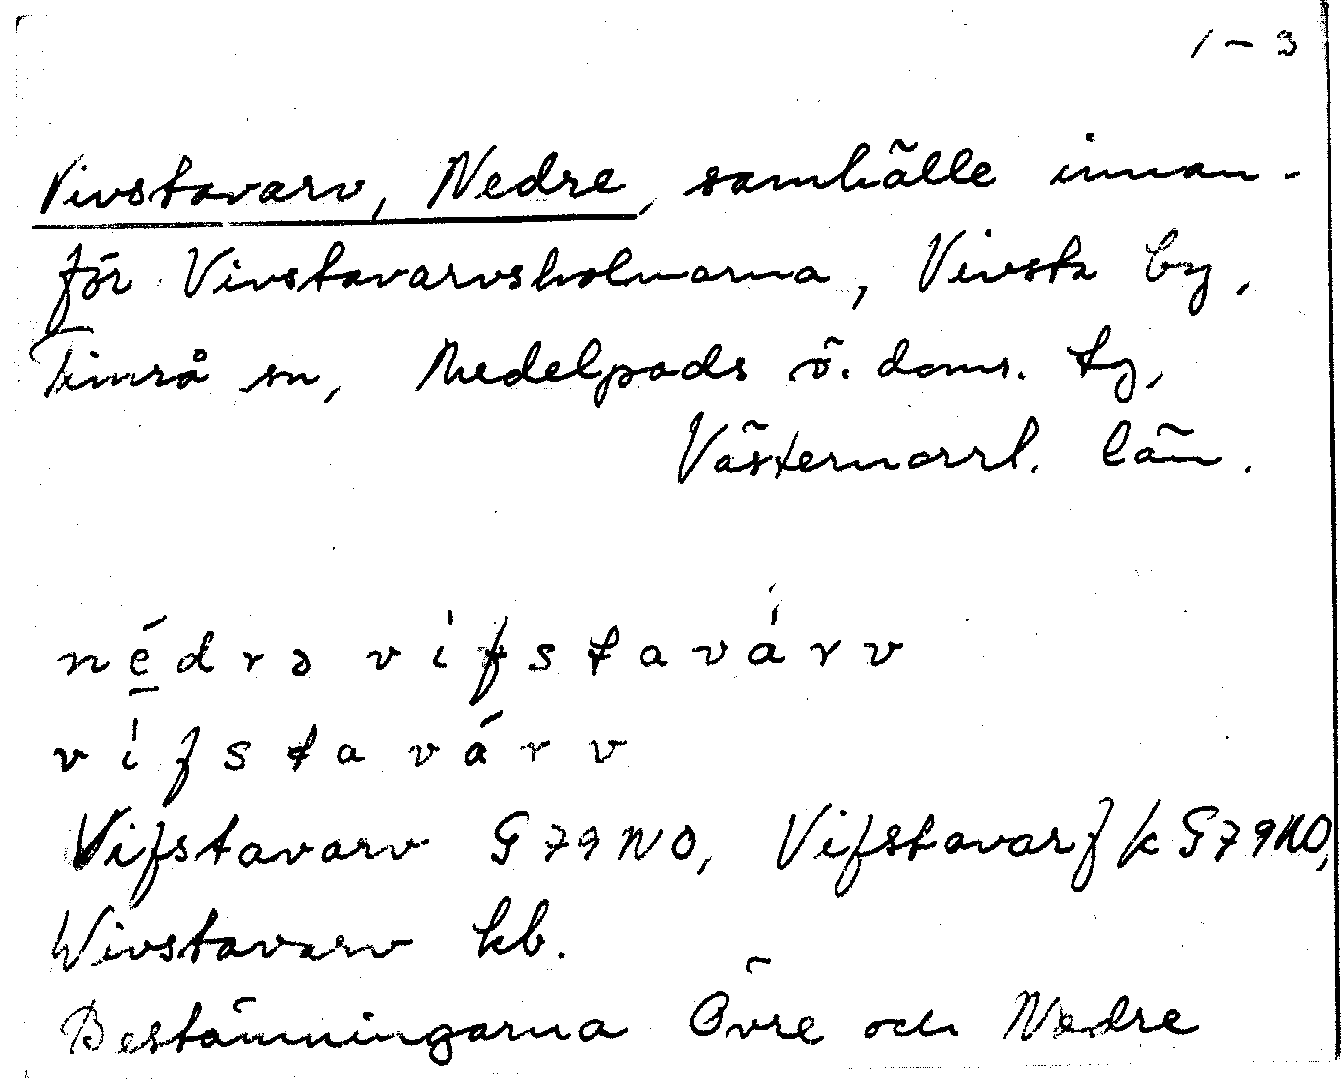 1-3
Vivstavarv, Nedre, samhälle innan-
för Vivstavarvsholmarna, Vivsta by,
Timrå sn, Medelpads ö. doms. tg,
Västernorrl. län.
nédrə vífstavárv
vífstavárv
Vifstavarv G79NO, Vifstavarf k G79NO,
Wivstavarv kb.
Bestämningarna Övre och Nedre